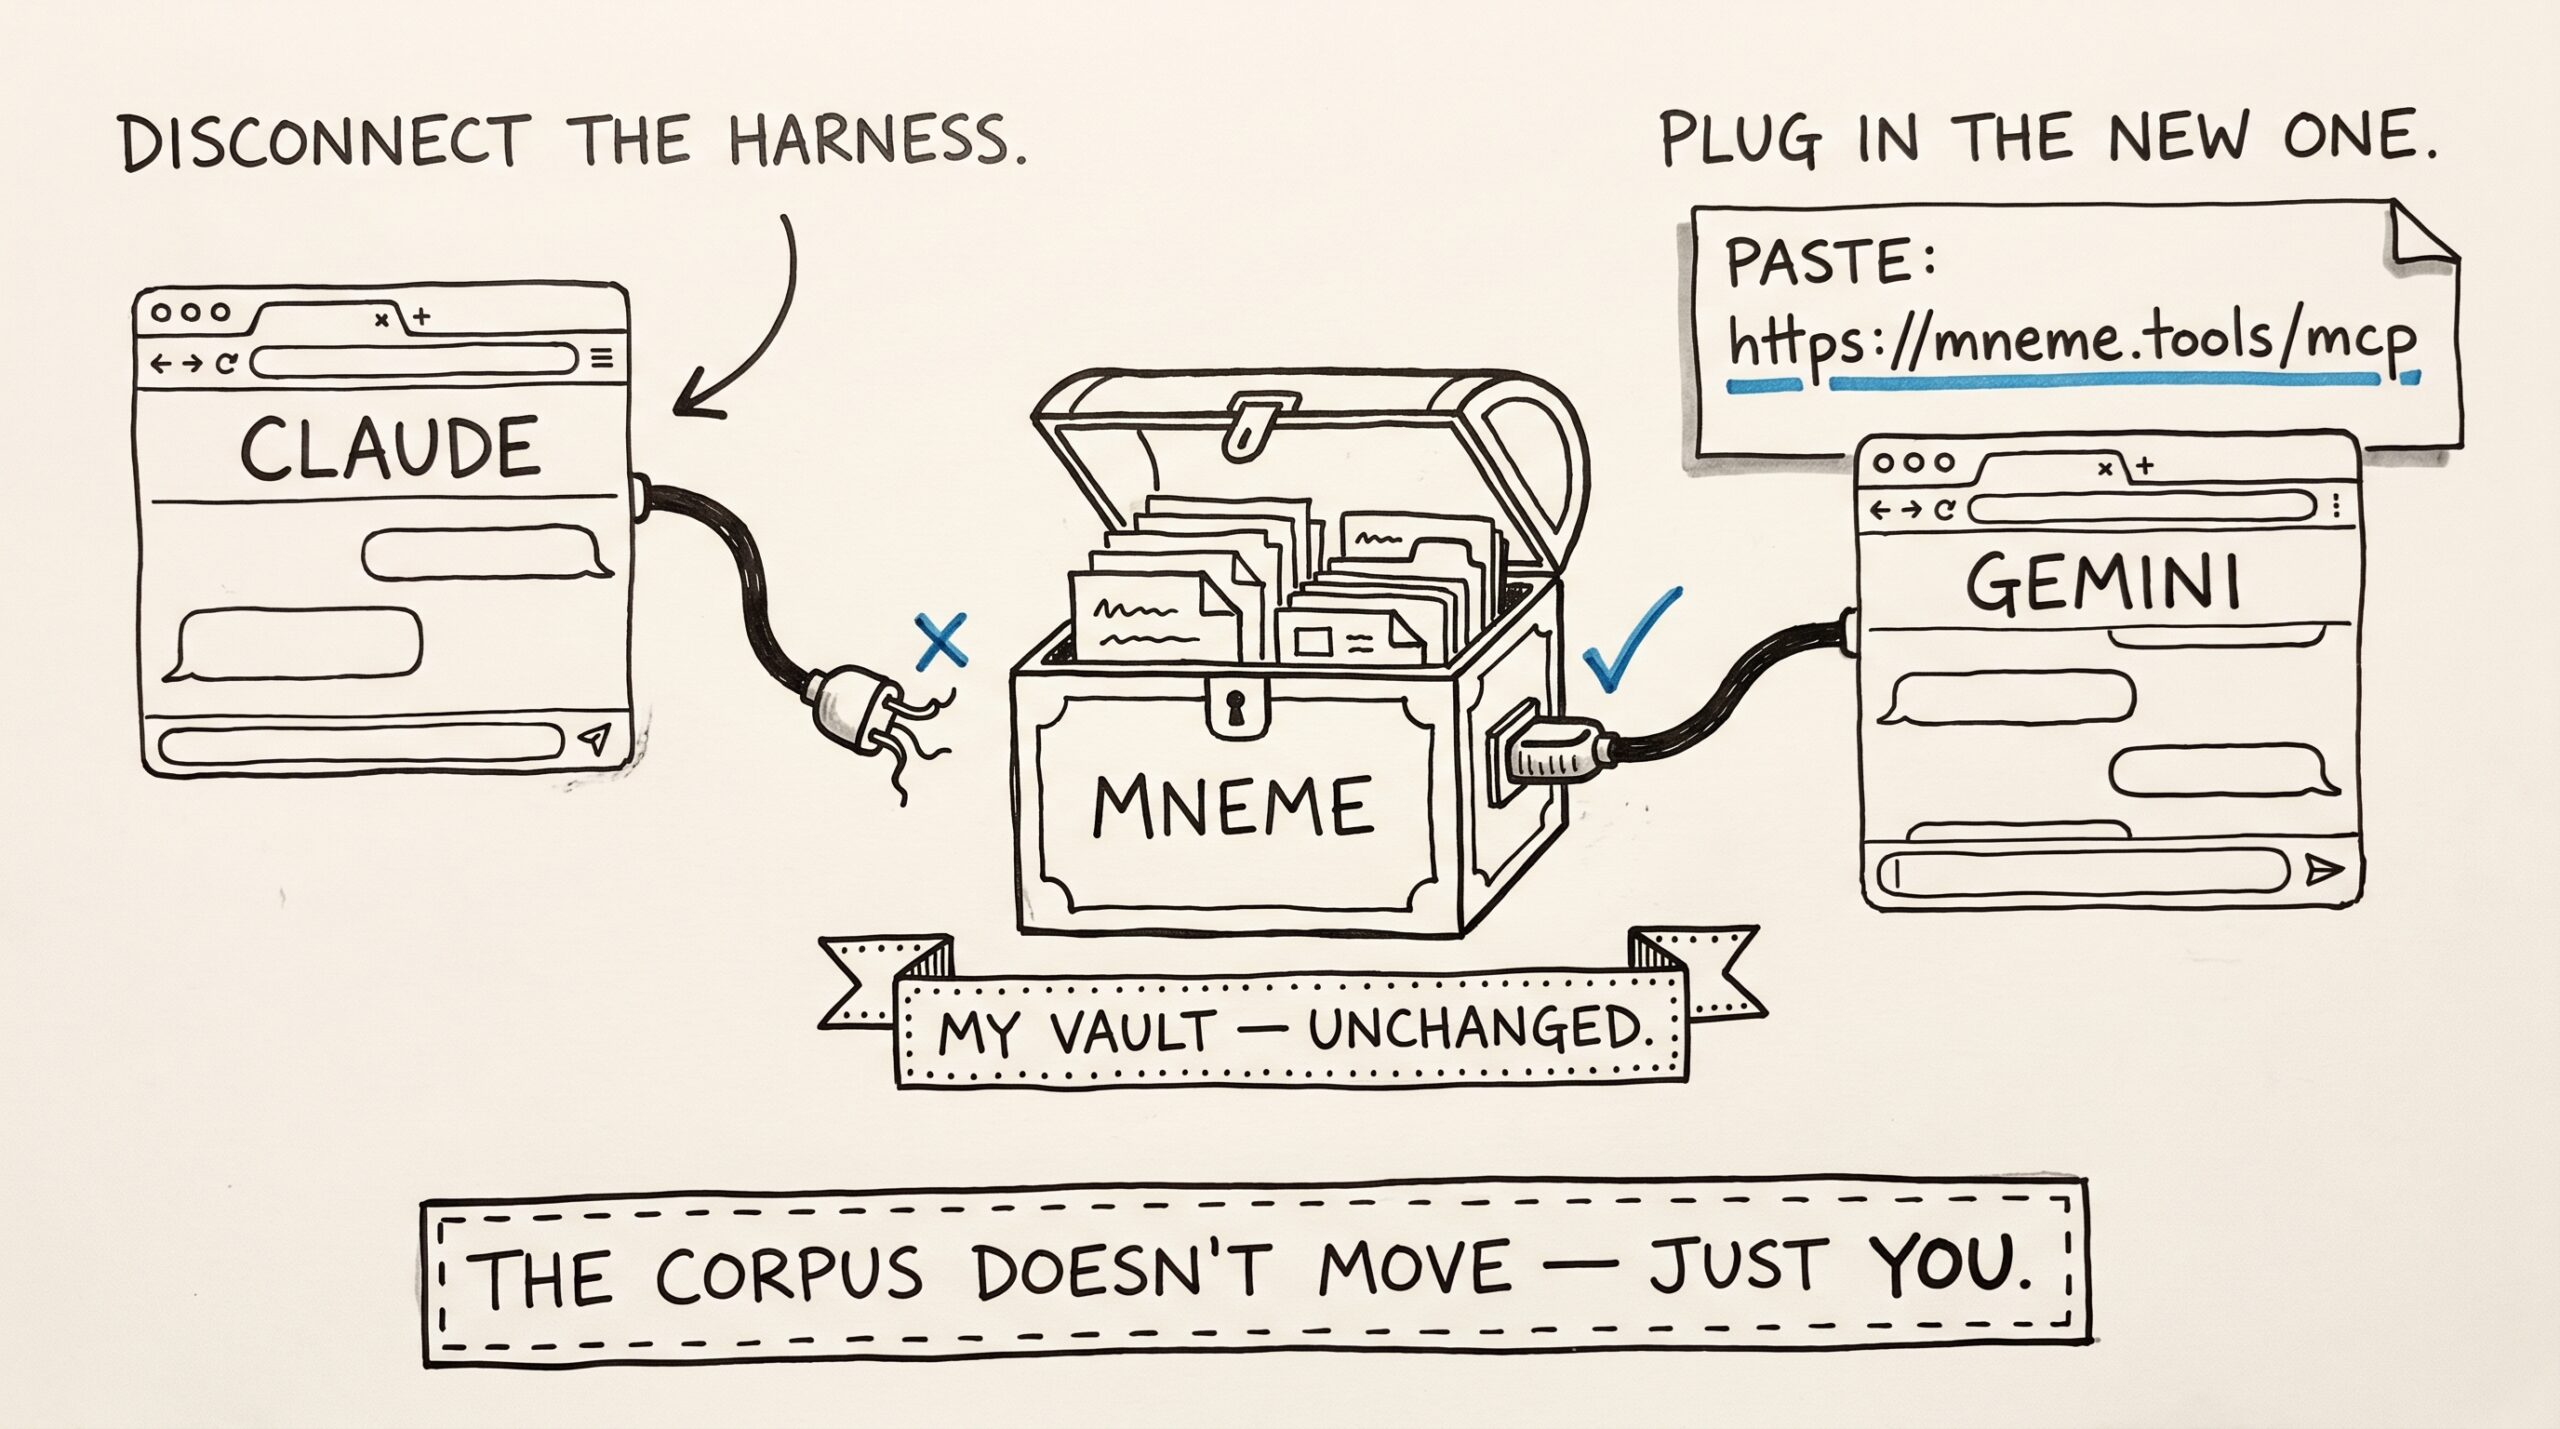 DISCONNECT THE HARNESS.
PLUG IN THE NEW ONE.
PASTE:
https://mneme.tools/mcp
CLAUDE
GEMINI
MNEME
MY VAULT — UNCHANGED.
THE CORPUS DOESN'T MOVE — JUST YOU.